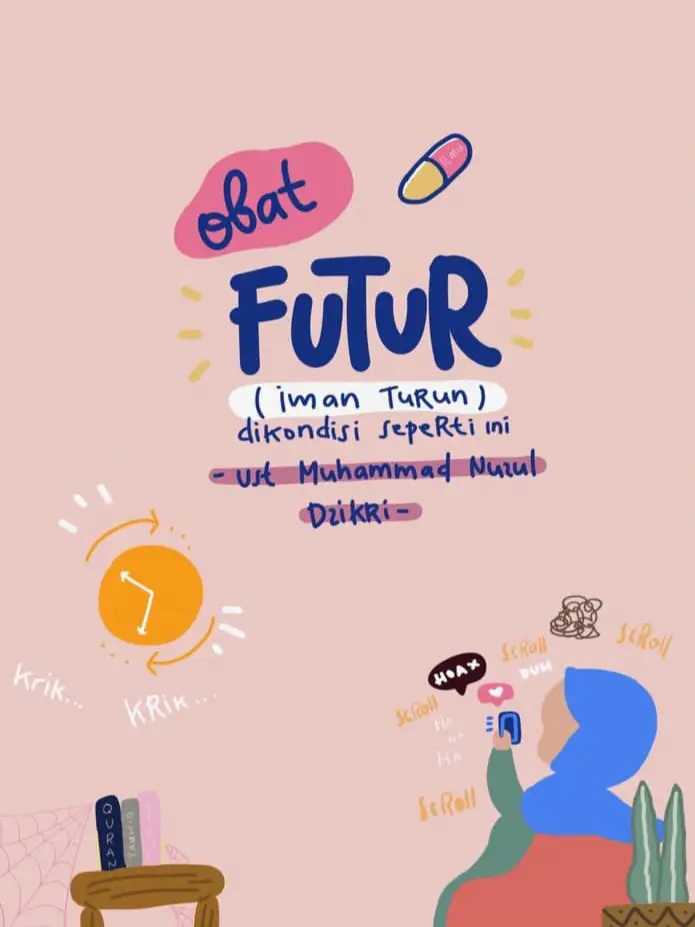 obat
ilmu
FUTUR
(iman TuRun)
dikondisi sepeRti ini
- ust Muhammad Nuzul
DzikRi -
KRik...
KRIK...
HOAX
ScRoll
ScRoll
DUH
ScRoll
HA
HA
HA
ScRoll
QURAN
TAUHID